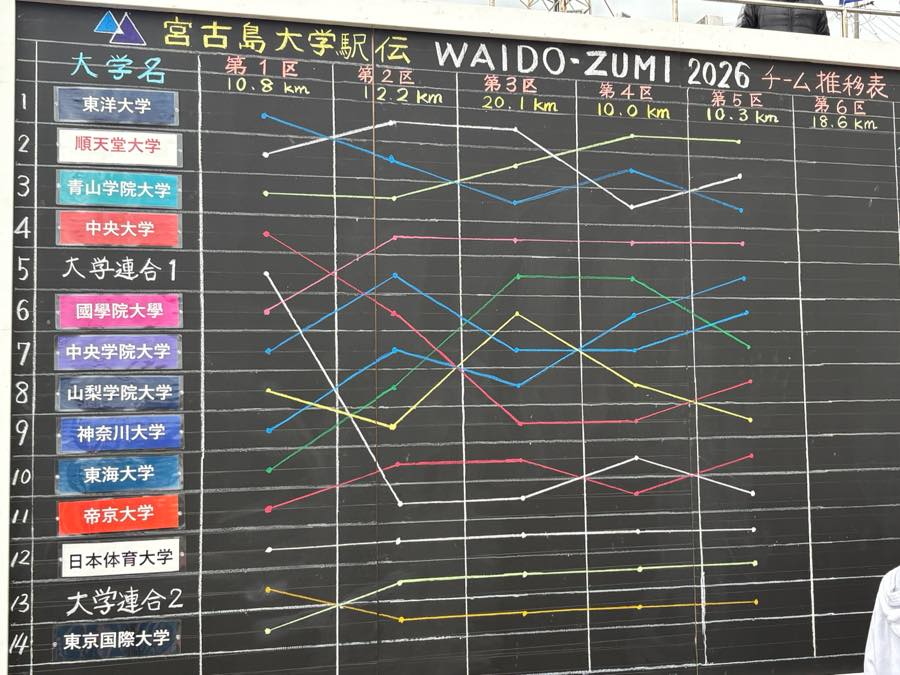 宮古島大学駅伝 WAIDO-ZUMI 2026 チーム推移表
大学名 第1区 第2区 第3区 第4区 第5区 第6区
10.8 km 12.2 km 20.1 km 10.0 km 10.3 km 18.6 km
1 東洋大学
2 順天堂大学
3 青山学院大学
4 中央大学
5 大学連合1
6 國學院大學
7 中央学院大学
8 山梨学院大学
9 神奈川大学
10 東海大学
11 帝京大学
12 日本体育大学
13 大学連合2
14 東京国際大学